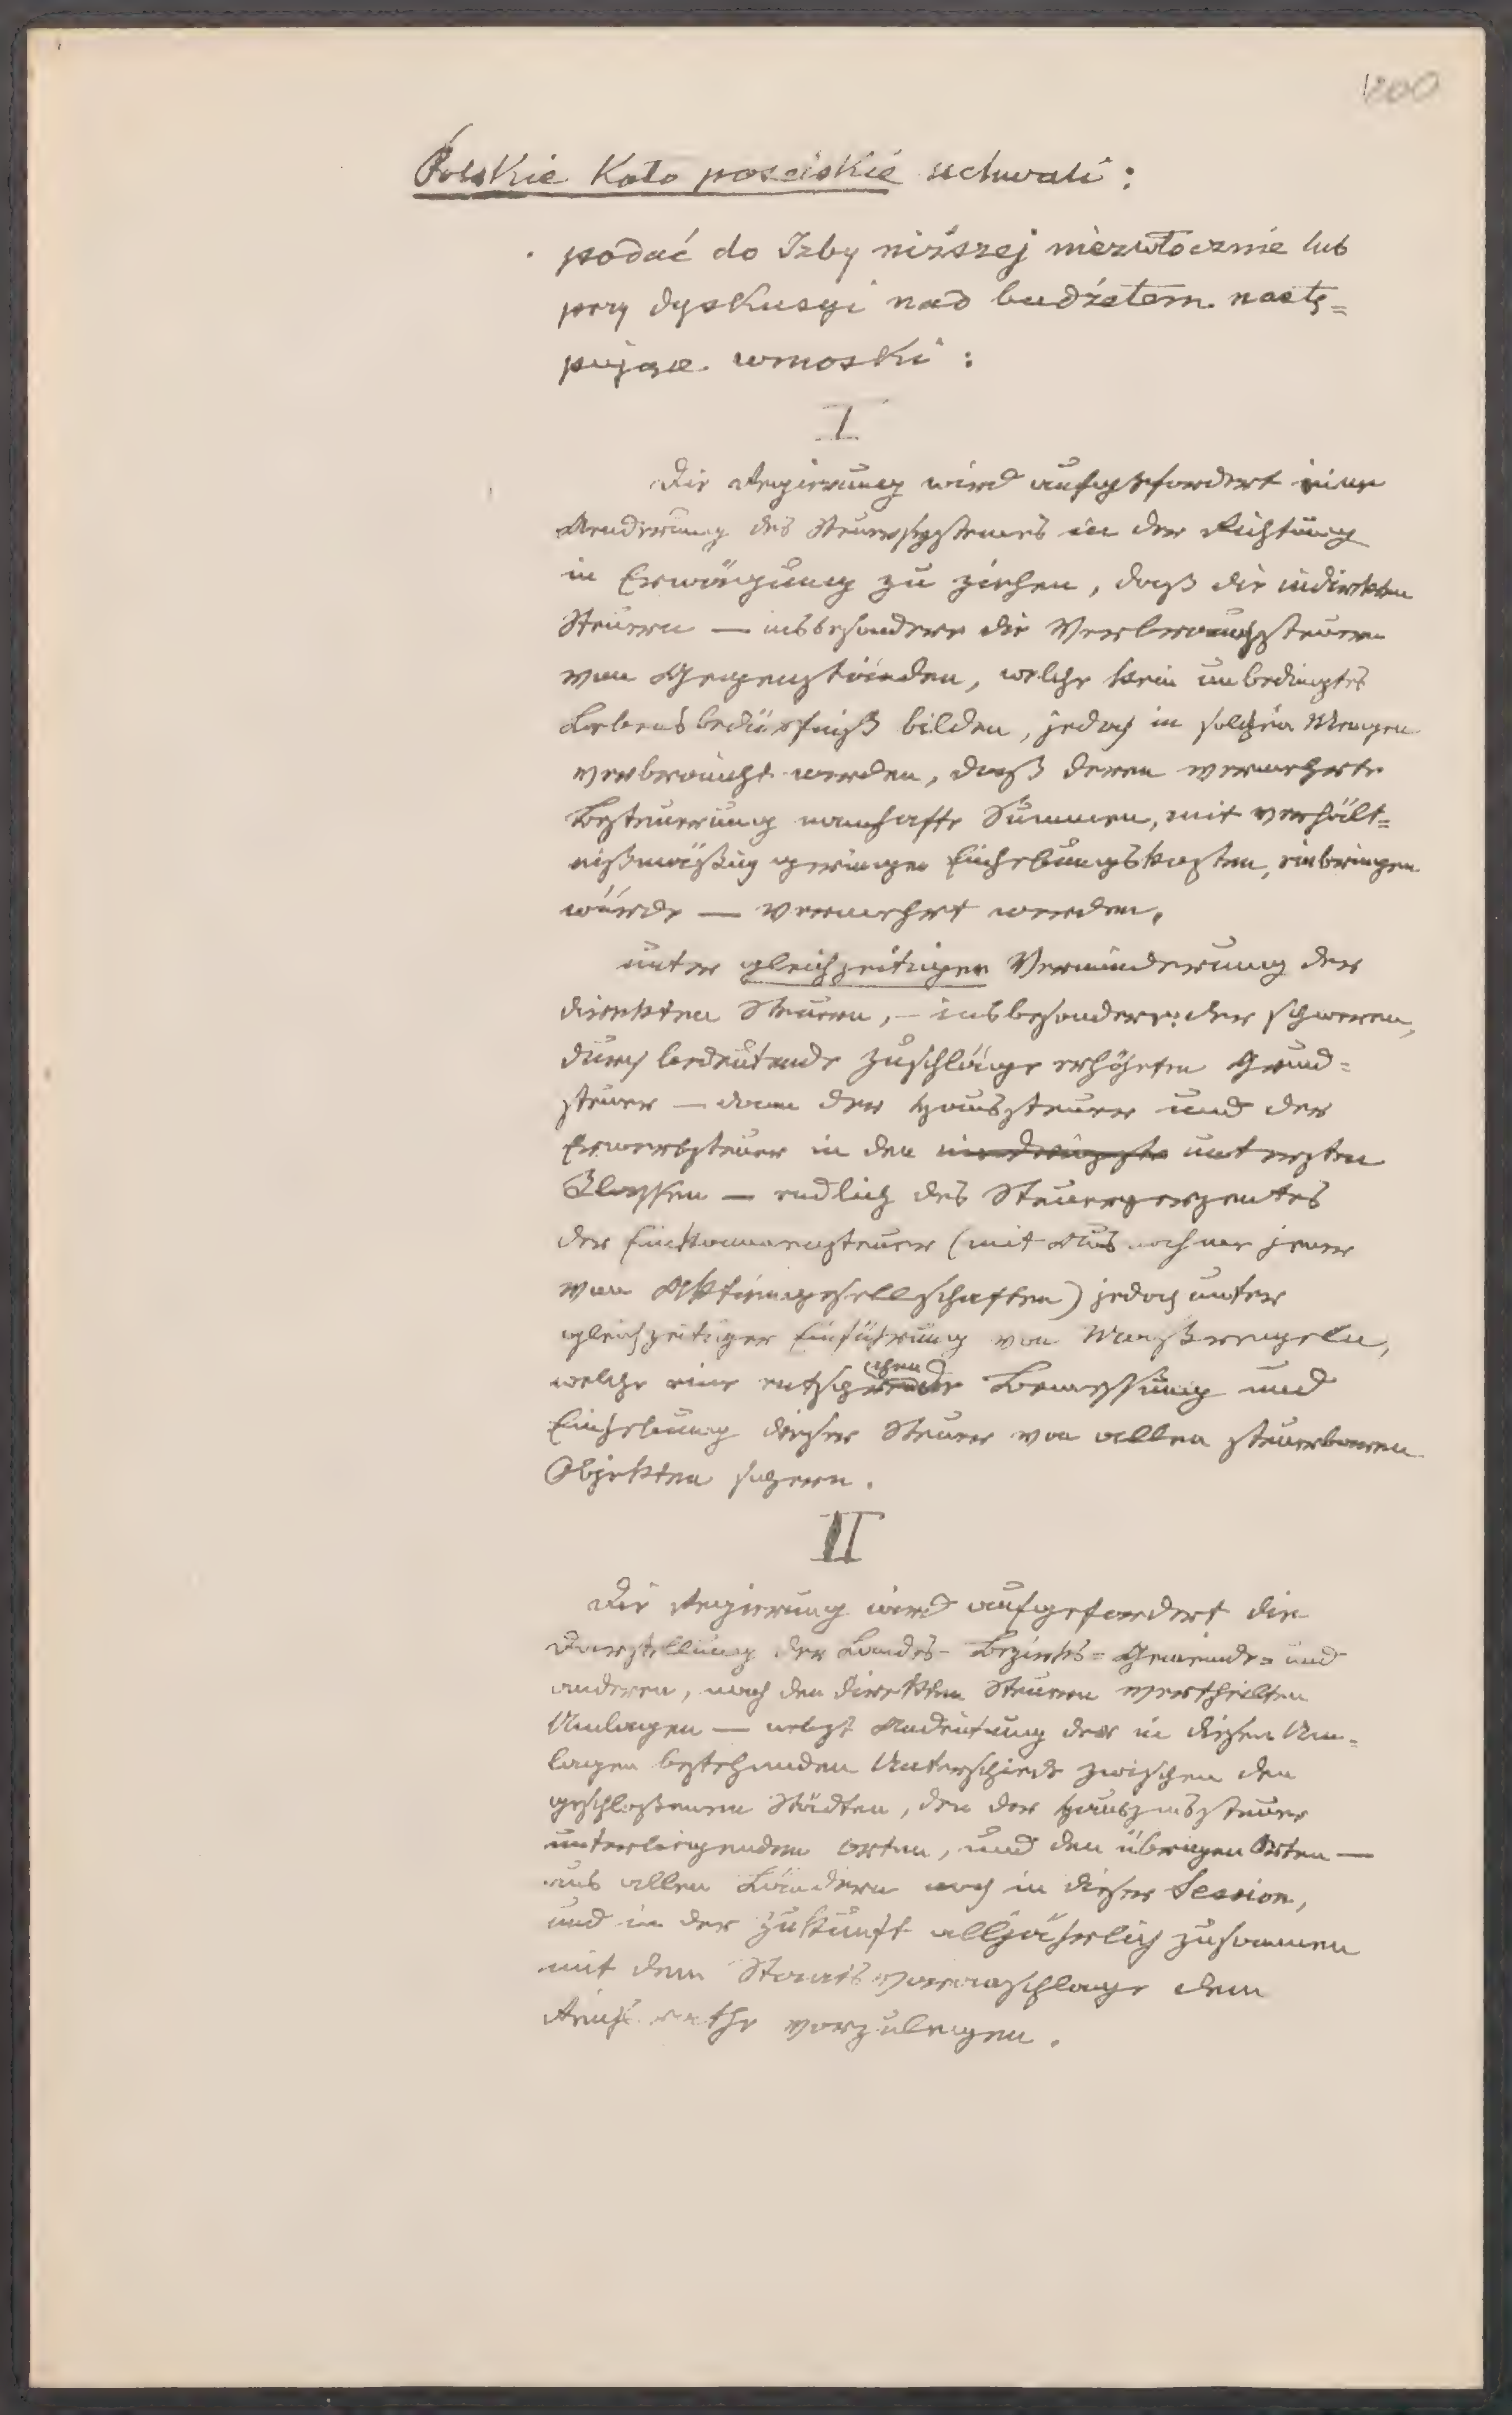 1200
Polskie Koło poselskie uchwali:
podać do Izby niższej niezwłocznie lub
przy dyskusyi nad budżetem nastę=
pujące wnioski:
I
Die Regierung wird aufgefordert eine
Aenderung des Steuersystemes in der Richtung
in Erwägung zu ziehen, daß die indirekten
Steuern — insbesondere die Verbrauchssteuern
von Gegenständen, welche kein unbedingtes
Lebensbedürfniß bilden, jedoch in solchen Mengen
verbraucht werden, daß deren vermehrte
Besteuerung namhafte Summen, mit verhält=
nißmäßig geringen Einhebungskosten, einbringen
würde — vermehrt werden,
unter gleichzeitiger Verminderung der
direkten Steuern, — insbesondere: der schweren,
durch bedeutende Zuschläge erhöhten Grund=
steuer — dann der Haussteuer und der
Erwerbsteuer in den untersten
Klassen — endlich des Steuerperzentes
der Einkommensteuer (mit Ausnahme jener
von Aktiengesellschaften) jedoch unter
gleichzeitiger Einführung von Maaßregeln,
welche eine Bemessung und
Einhebung dieser Steuer von allen steuerbaren
Objekten sichern.
II
Die Regierung wird aufgefordert die
Darstellung der Landes- Bezirks= Gemeinde= und
anderen, nach den direkten Steuern vertheilten
Umlagen — nebst Andeutung der in diesen Um=
lagen bestehenden Unterschiede zwischen den
geschloßenen Städten, den der Hauszinssteuer
unterliegenden Orten, und den übrigen Orten —
aus allen Ländern noch in dieser Session,
und in der Zukunft alljährlich zusammen
mit dem Staatsvoranschlage dem
Reichsrathe vorzulegen.